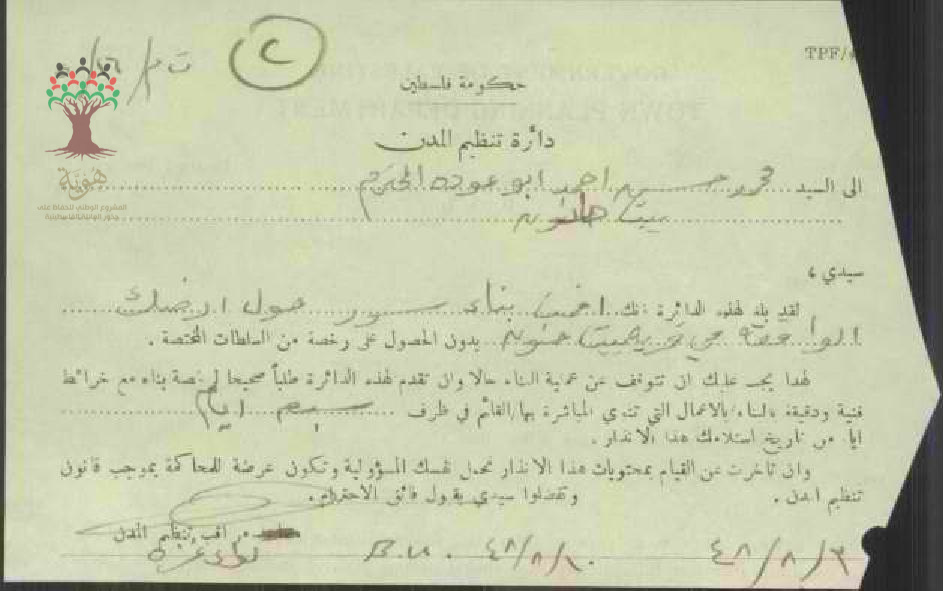 TPF/4
حكومة فلسطين
دائرة تنظيم المدن
الى السيد حسين احمد ابو عوده المحترم
بيت حانون
سيدي ،
لقد بلغ لهذه الدائرة انك بناء سور حول ارضك
الواقعة في بدون الحصول على رخصة من السلطات المختصة .
لهذا يجب عليك ان تتوقف عن عملية البناء حالا وان تقدم لهذه الدائرة طلباً صحيحا لرخصة بناء مع خرائط
فنية ودقيقة للبناء بالاعمال التي تنوي المباشرة بها/القائم في ظرف سبع ايام
ايام من تاريخ استلامك هذا الانذار .
وان تأخرت عن القيام بمحتويات هذا الانذار تحمل نفسك المسؤولية وتكون عرضة للمحاكمة بموجب قانون
تنظيم المدن . وتفضلوا سيدي بقبول فائق الاحترام .
مراقب تنظيم المدن
لواء غزة
٤٨/٨/١٠
٤٨/٨/٦
هوية
المشروع الوطني للحفاظ على
جذور العائلة الفلسطينية